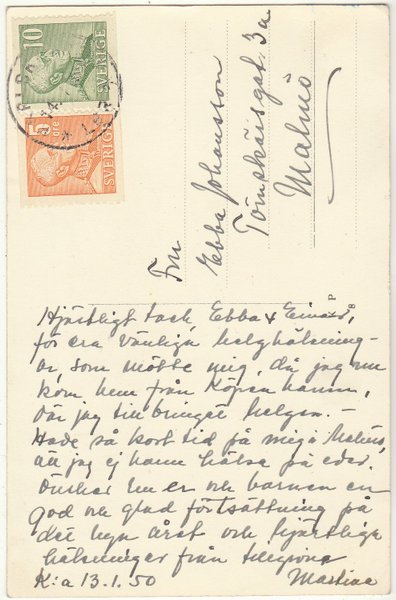 10
SVERIGE
5
öre
SVERIGE
14
Fru
Ebba Johansson
Tornskärsgat. 3a
Malmö
P
8
Hjärtligt tack, Ebba & Einar,
för era vänliga helghälsning-
ar, som mötte mig, då jag nu
kom hem från Köpenhamn,
där jag tillbringat helgen. -
Hade så kort tid på mig i Malmö,
att jag ej hann hälsa på eder.
Önskar nu er och barnen en
god och glad fortsättning på
det nya året och hjärtliga
hälsningar från
K:a 13.1.50 Martina